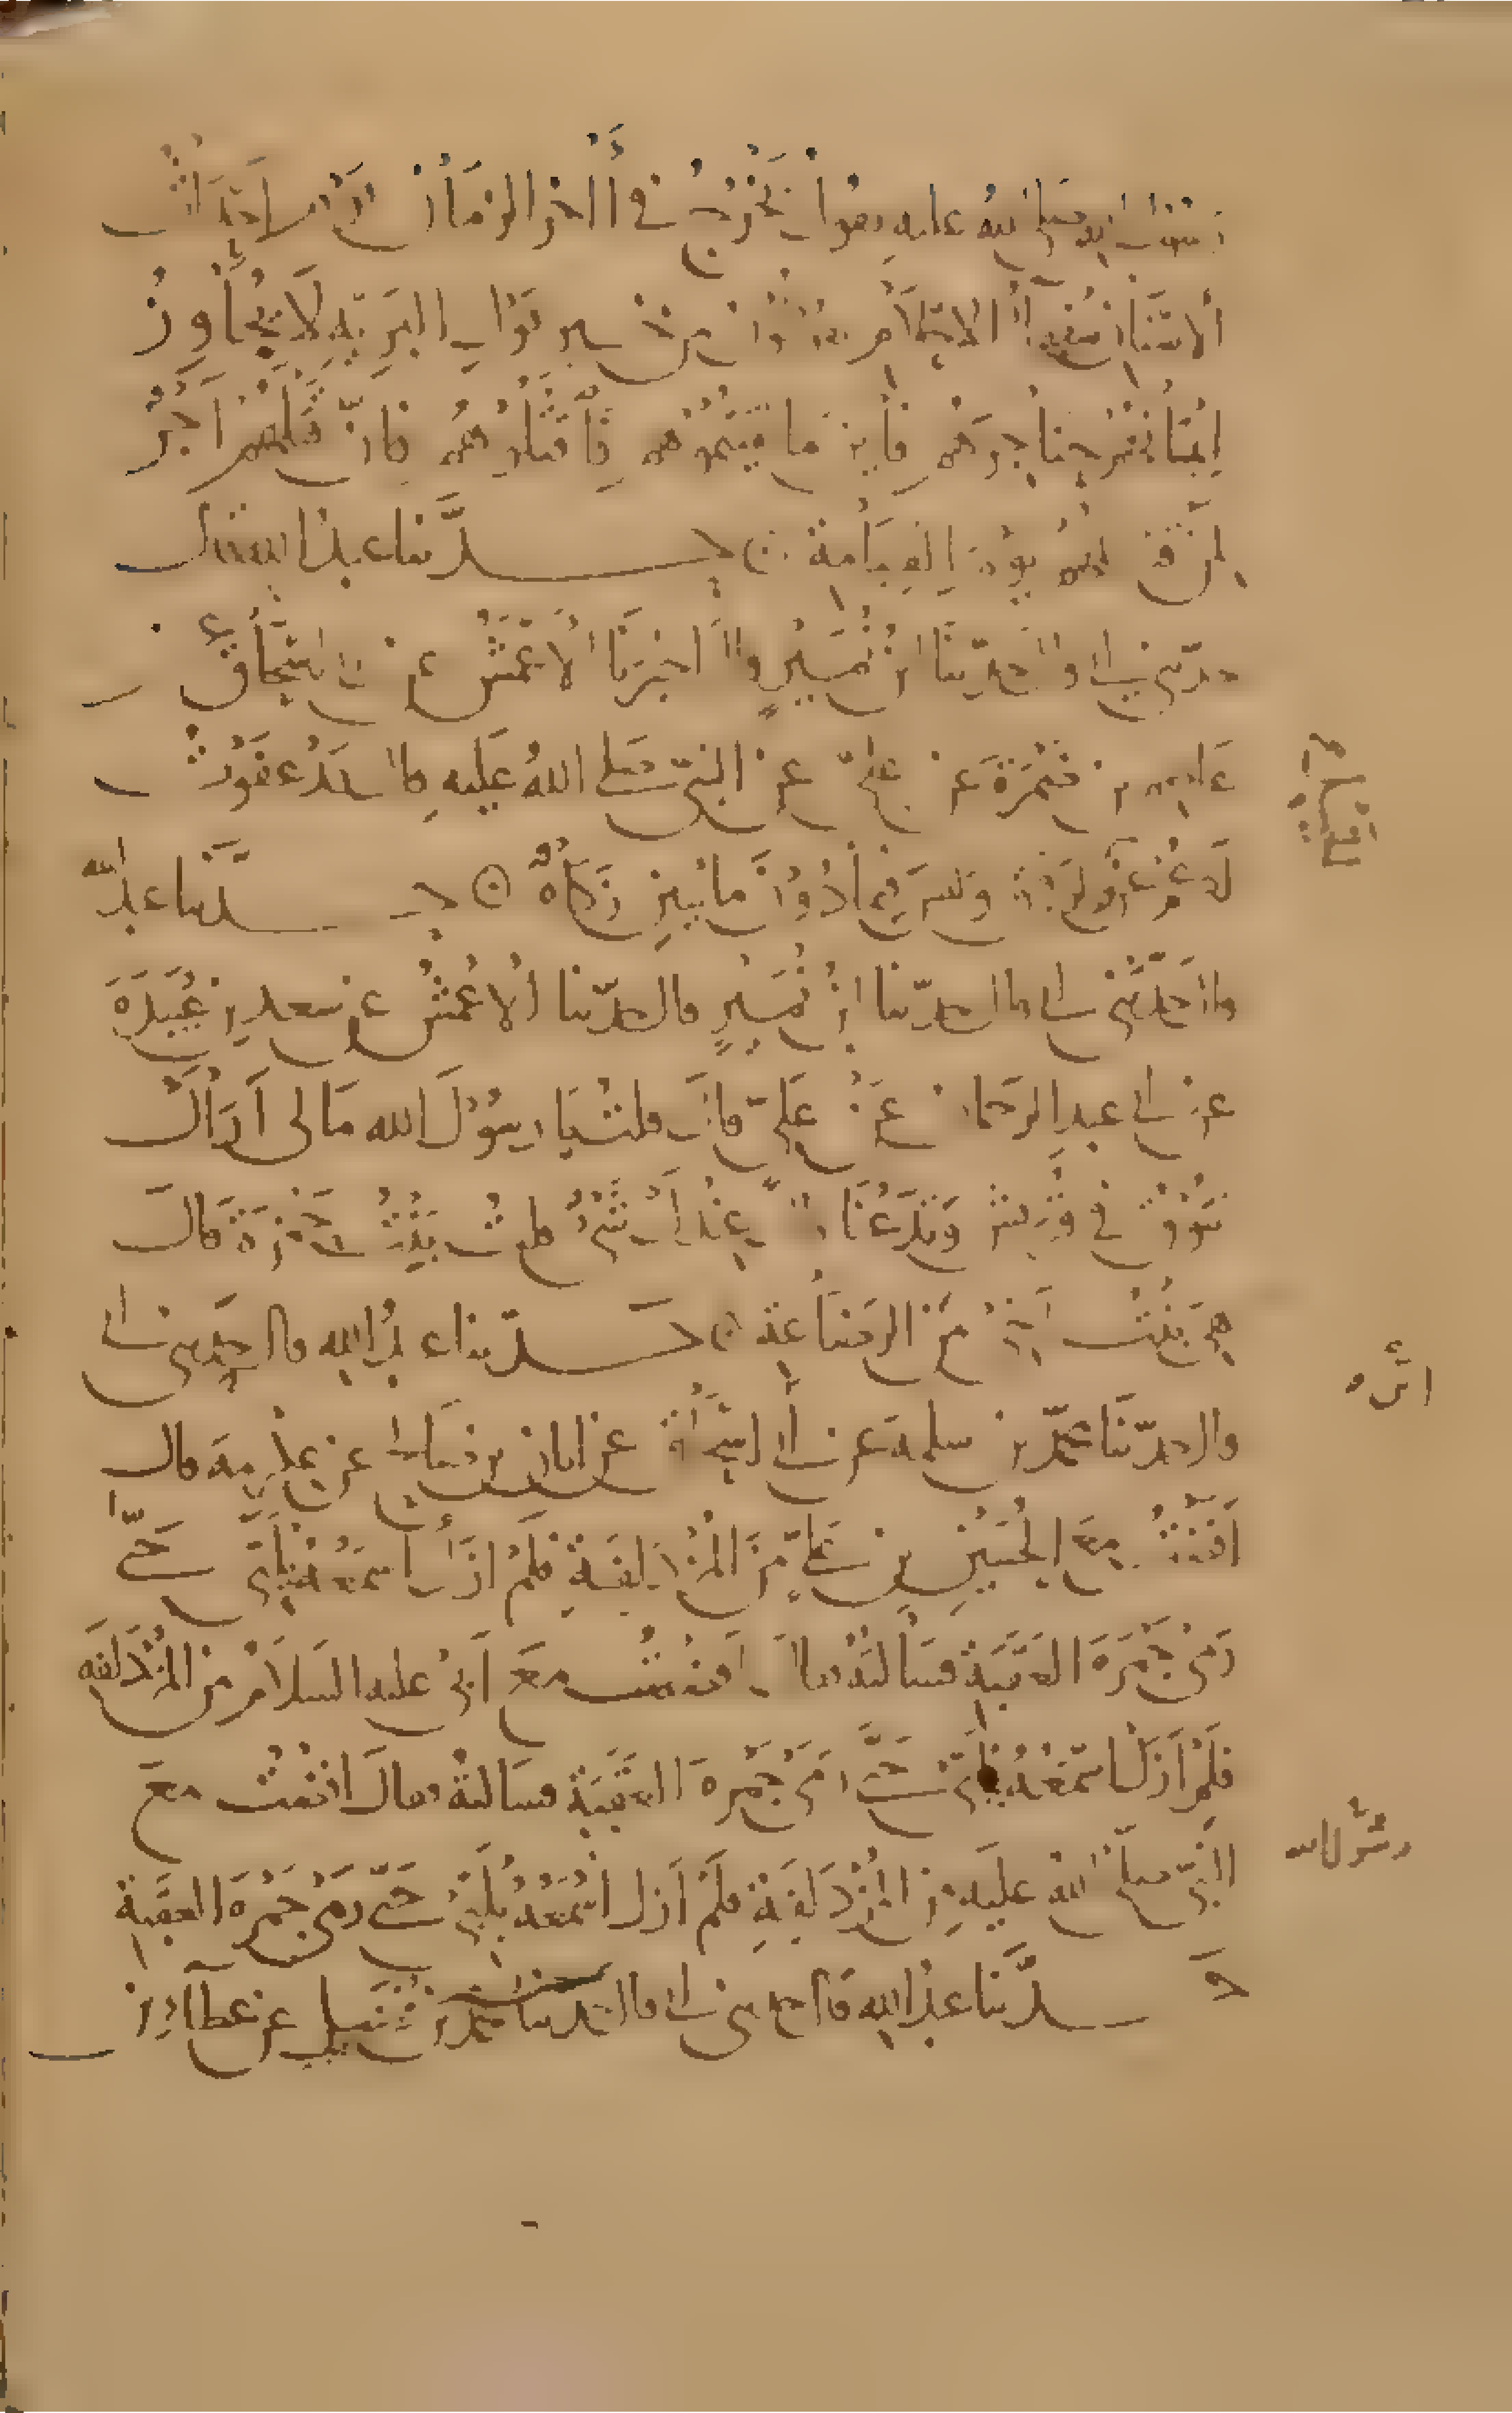 رسول الله صلى الله عليه يقول يخرج في آخر الزمان أحداث
الاسنان سفهاء الاحلام يقولون من خير قول البرية لا يجاوز
إيمانهم حناجرهم فأين ما لقيتموهم فاقتلوهم فإن قتلهم أجر
لمن قتلهم يوم القيامة ۞ حدثنا عبد الله قال
حدثني أبي قال حدثنا ابن نمير قال أخبرنا الأعمش عن أبي إسحاق عن
عاصم بن ضمرة عن علي عن النبي صلى الله عليه قال قد عفوت
لكم عن وليس فيما دون مائتين زكاة ۞ حدثنا عبد الله
قال حدثني أبي قال حدثنا ابن نمير قال حدثنا الأعمش عن سعد بن عبيدة
عن أبي عبد الرحمان عن علي قال قلت يا رسول الله ما لي أراك
تنوق في قريش وتدعنا قال عندك شيء قلت بنت حمزة قال
هي بنت أخي من الرضاعة ۞ حدثنا عبد الله قال حدثني أبي
قال حدثنا محمد بن سلمة عن ابن إسحاق عن أبان بن صالح عن عكرمة قال
أفضت مع الحسين بن علي من المزدلفة فلم أزل أسمعه يلبي حتى
رمى جمرة العقبة فسألته فقال أفضت مع أبي عليه السلام من المزدلفة
فلم أزل أسمعه يلبي حتى رمى جمرة العقبة فسألته فقال أفضت مع
النبي صلى الله عليه من المزدلفة فلم أزل أسمعه يلبي حتى رمى جمرة العقبة
حدثنا عبد الله قال حدثني أبي قال حدثنا محمد بن فضيل عن عطاء بن